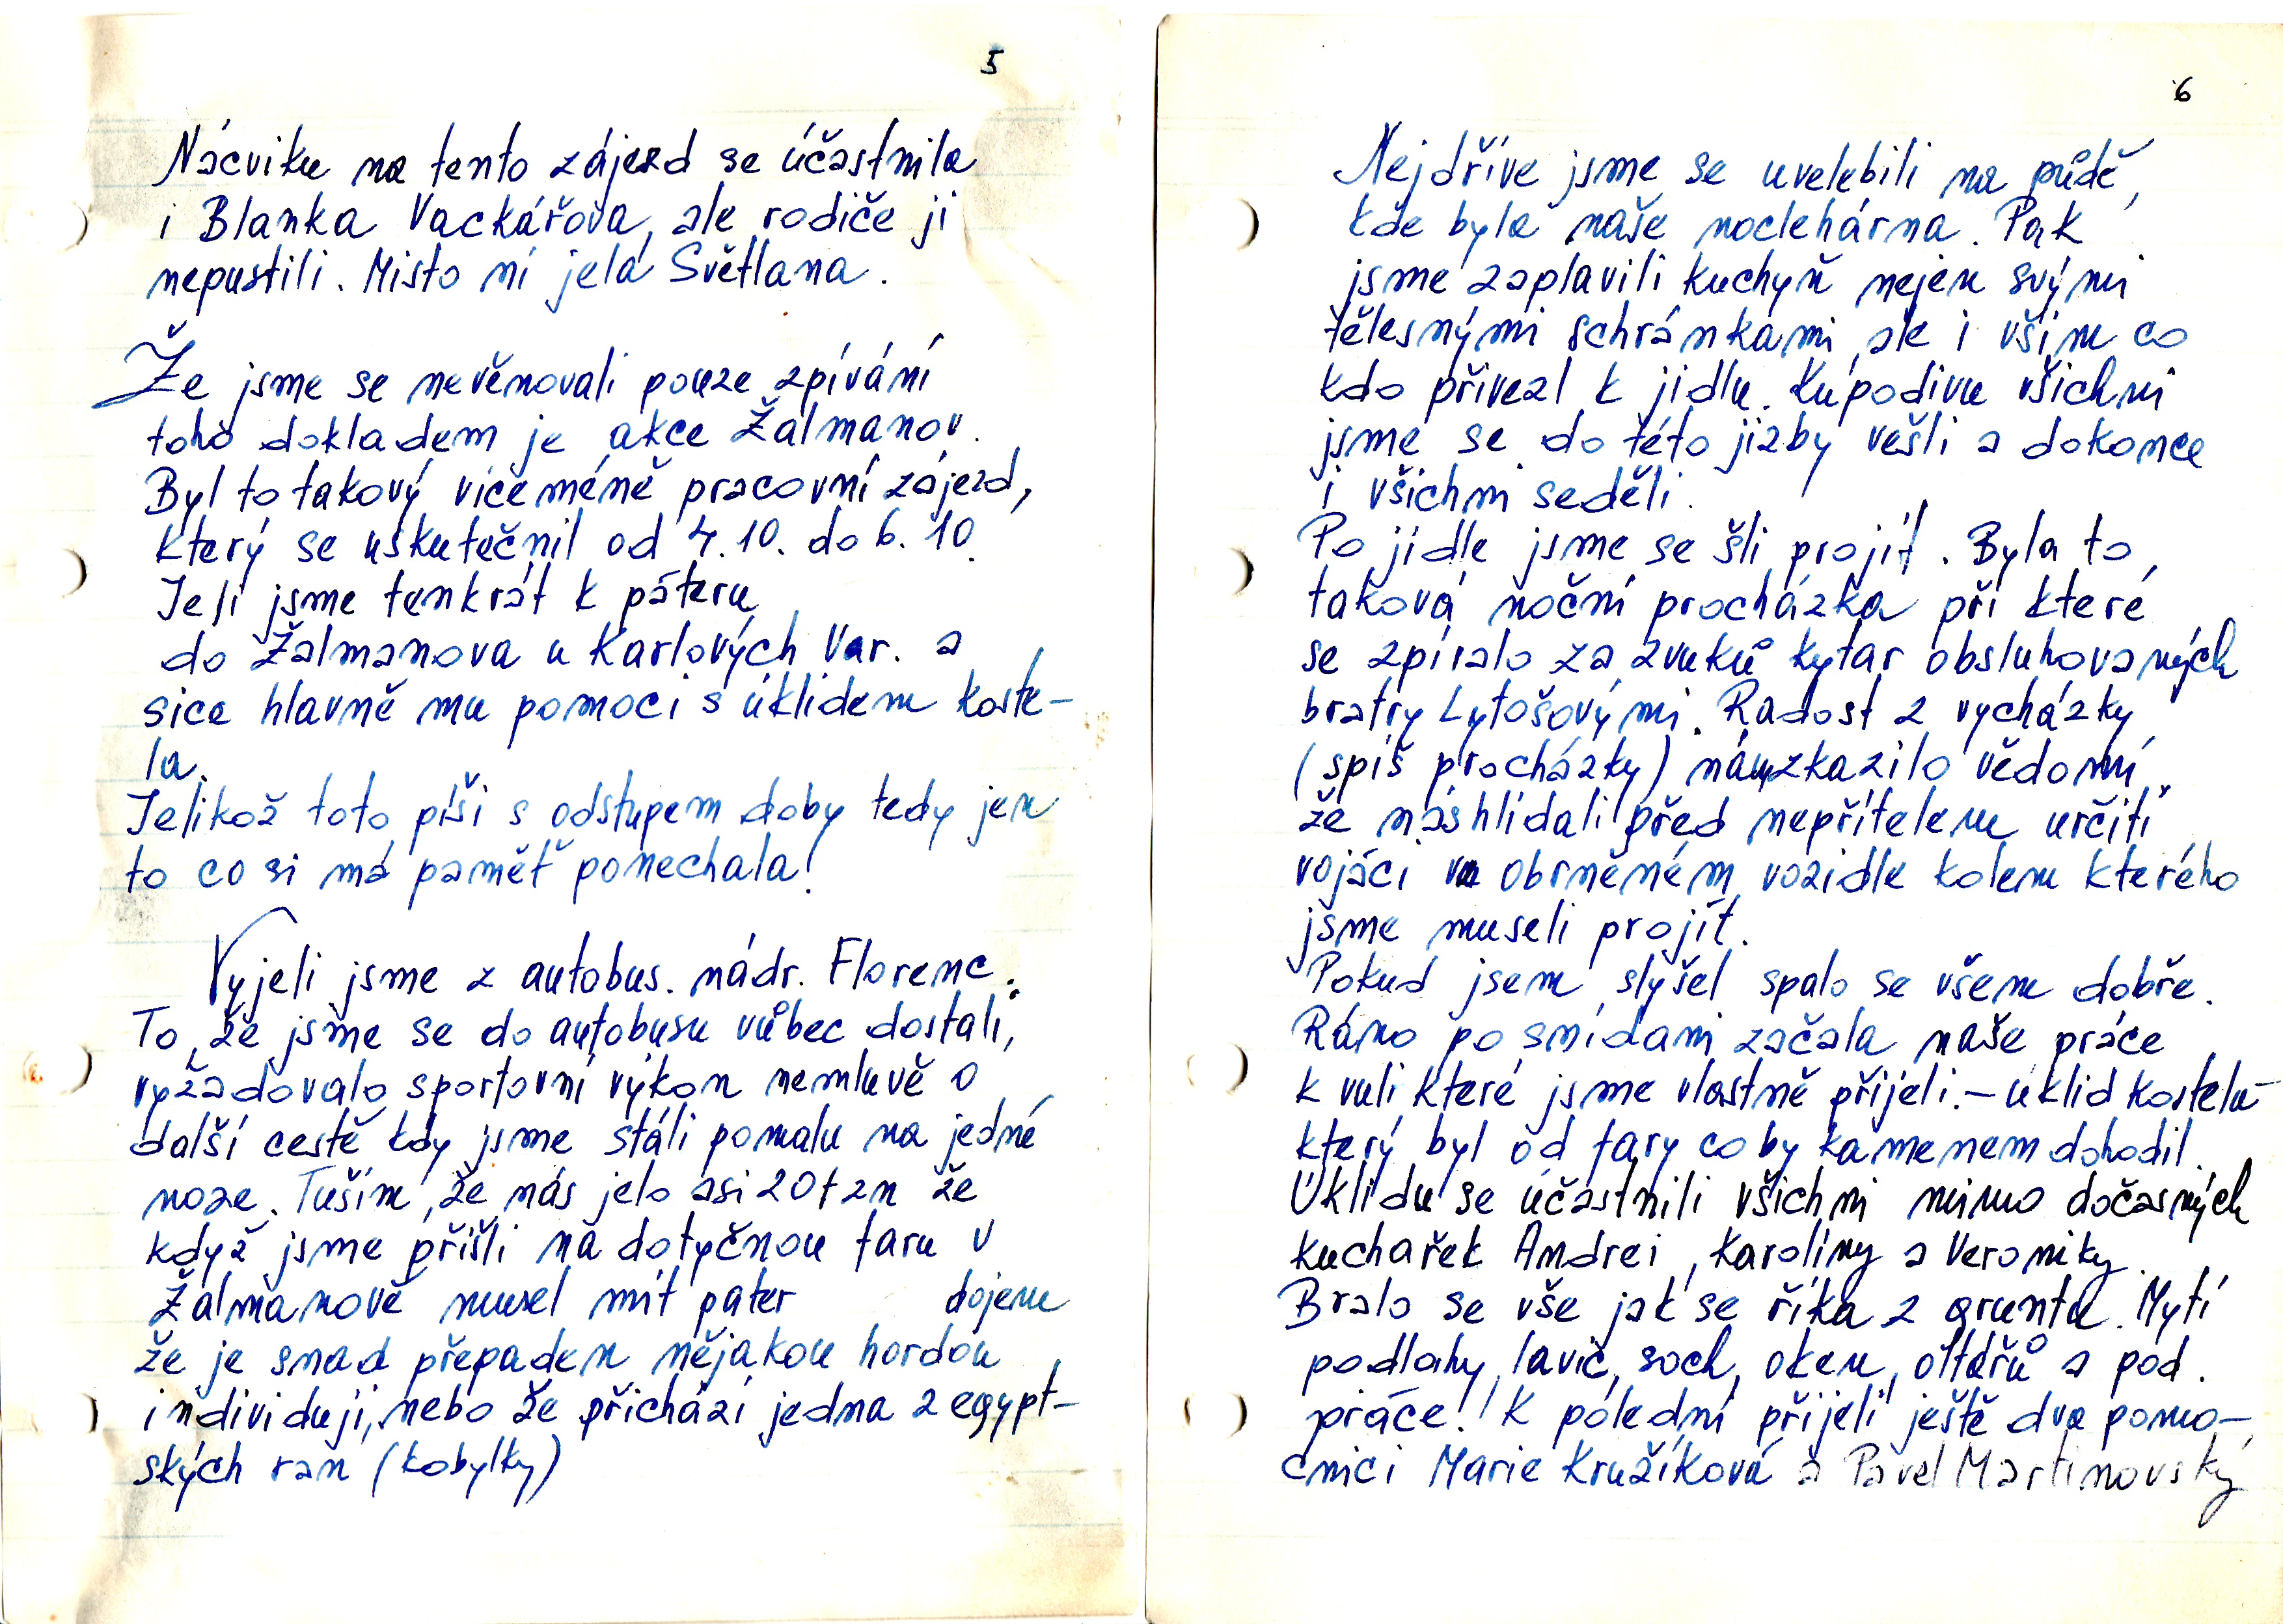 5
Nácviku na tento zájezd se účastnila
i Blanka Vackářová, ale rodiče ji
nepustili. Misto ní jela Světlana.
Že jsme se nevěnovali pouze zpívání
toho dokladem je akce Žalmanov.
Byl to takový víceméně pracovní zájezd,
který se uskutečnil od 4.10. do 6.10.
Jeli jsme tenkrát k páteru
do Žalmanova u Karlových Var. a
sice hlavně mu pomoci s úklidem koste-
la.
Jelikož toto píši s odstupem doby tedy jen
to co si má paměť ponechala!
Vyjeli jsme z autobus. nádr. Florenc.
To, že jsme se do autobusu vůbec dostali,
vyžadovalo sportovní výkon nemluvě o
další cestě kdy jsme stáli pomalu na jedné
noze. Tuším, že nás jelo asi 20 tzn že
když jsme přišli na dotyčnou faru v
Žalmanově musel mít páter dojem
že je snad přepaden nějakou hordou
individuji, nebo že přichází jedna z egypt-
ských ran (kobylky)
6
Nejdříve jsme se uvelebili na půdě,
kde byla naše noclehárna. Pak
jsme zaplavili kuchyň nejen svými
tělesnými schránkami, ale i vším co
kdo přivezl k jídlu. Kupodivu všichni
jsme se do této jizby vešli a dokonce
i všichni seděli.
Po jídle jsme se šli projít. Byla to
taková noční procházka při které
se zpívalo za zvuků kytar obsluhovaných
bratry Lytošovými. Radost z vycházky
(spíš procházky) nám zkazilo vědomí,
že nás hlídali před nepřítelem určití
vojáci v obrněném vozidle kolem kterého
jsme museli projít.
Pokud jsem slyšel spalo se všem dobře.
Ráno po snídani začala naše práce
k vuli které jsme vlastně přijeli. - úklid kostelu
který byl od fary co by kamenem dohodil.
Úklidu se účastnili všichni mimo dočasných
kuchařek Andrei, Karolíny a Veroniky.
Bralo se vše jak se říka z gruntu. Mytí
podlahy, lavic, soch, oken, oltářů a pod.
práce! K polední přijeli ještě dva pomo-
cníci Marie Kružíková a Pavel Martinovský